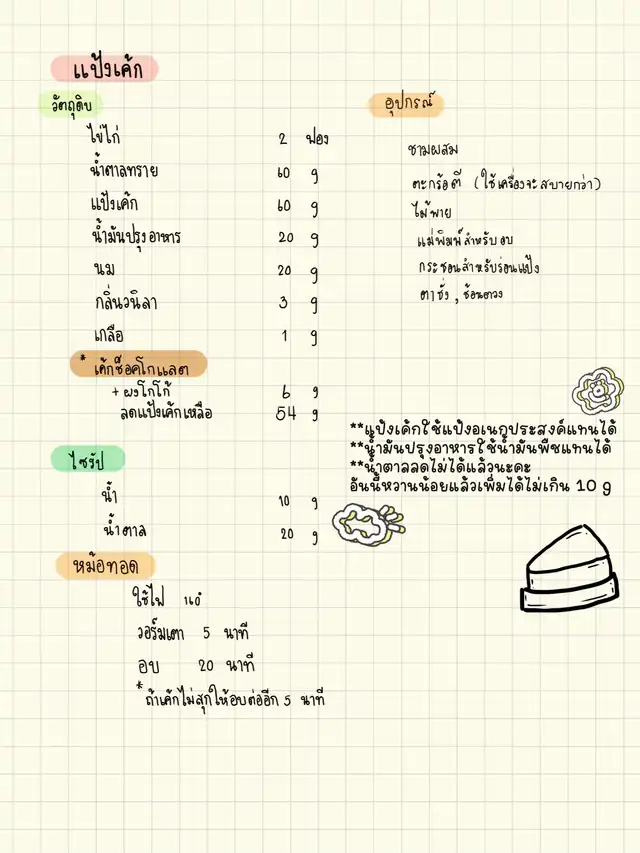 แป้งเค้ก
วัตถุดิบ
ไข่ไก่ 2 ฟอง
น้ำตาลทราย 60 g
แป้งเค้ก 60 g
น้ำมันปรุงอาหาร 20 g
นม 20 g
กลิ่นวนิลา 3 g
เกลือ 1 g
* เค้กช็อคโกแลต
+ ผงโกโก้ 6 g
ลดแป้งเค้กเหลือ 54 g
ไซรัป
น้ำ 10 g
น้ำตาล 20 g
หม้อทอด
ใช้ไฟ 140°
วอร์มเตา 5 นาที
อบ 20 นาที
* ถ้าเค้กไม่สุกให้อบต่ออีก 5 นาที
อุปกรณ์
ชามผสม
ตะกร้อตี (ใช้เครื่องจะสบายกว่า)
ไม้พาย
แม่พิมพ์สำหรับอบ
กระชอนสำหรับร่อนแป้ง
ตาชั่ง , ช้อนตวง
**แป้งเค้กใช้แป้งอเนกประสงค์แทนได้
**น้ำมันปรุงอาหารใช้น้ำมันพืชแทนได้
**น้ำตาลลดไม่ได้แล้วนะคะ
อันนี้หวานน้อยแล้วเพิ่มได้ไม่เกิน 10 g